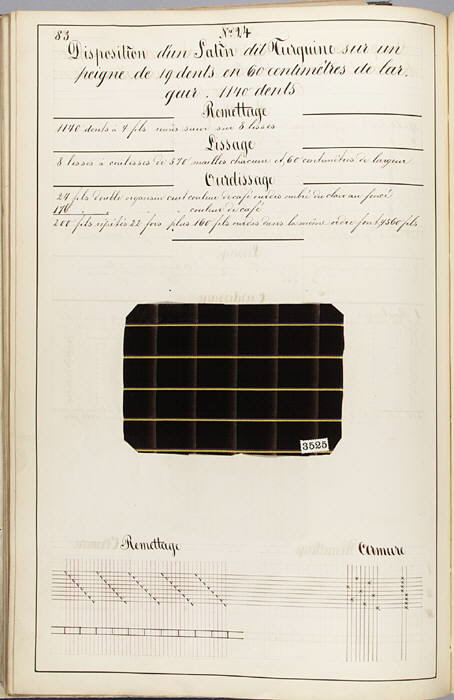 83
N° 24
Disposition d'un Satin dit Turquine sur un
peigne de 19 dents en 60 centimètres de lar.
geur. 1140 dents
Remettage
1140 dents à 4 fils sur 8 lisses
Lissage
8 lisses à coulisses de 570 mailles chacune et 60 centimètres de largeur
Ourdissage
24 fils double organsin cuit couleur de café ourdis ombré du clair au foncé
176 couleur de café
200 fils répétés 22 fois plus 160 fils ourdis dans le même ordre font 4560 fils
3525
Remettage
Armure